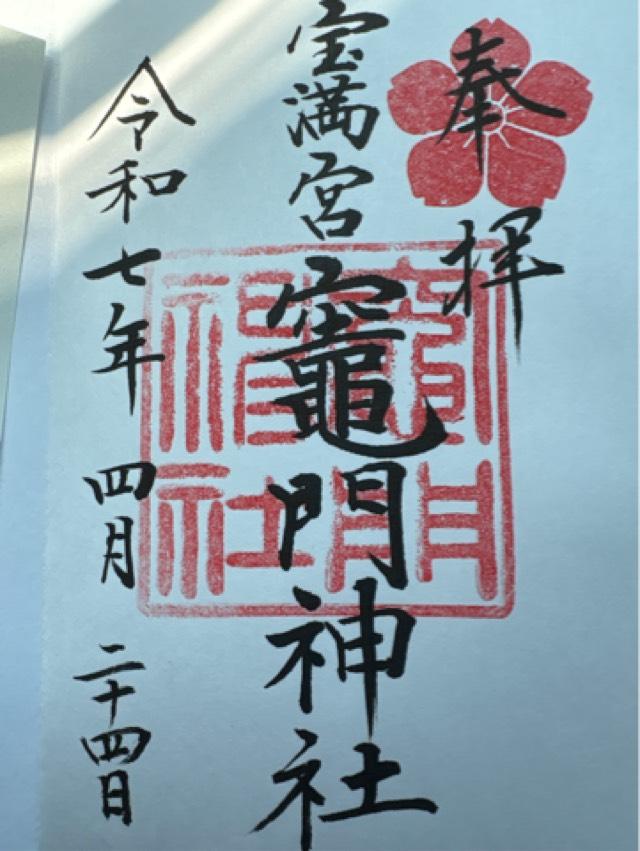 奉拝
宝満宮
竈門神社
令和七年 四月 二十四日
竈門神社